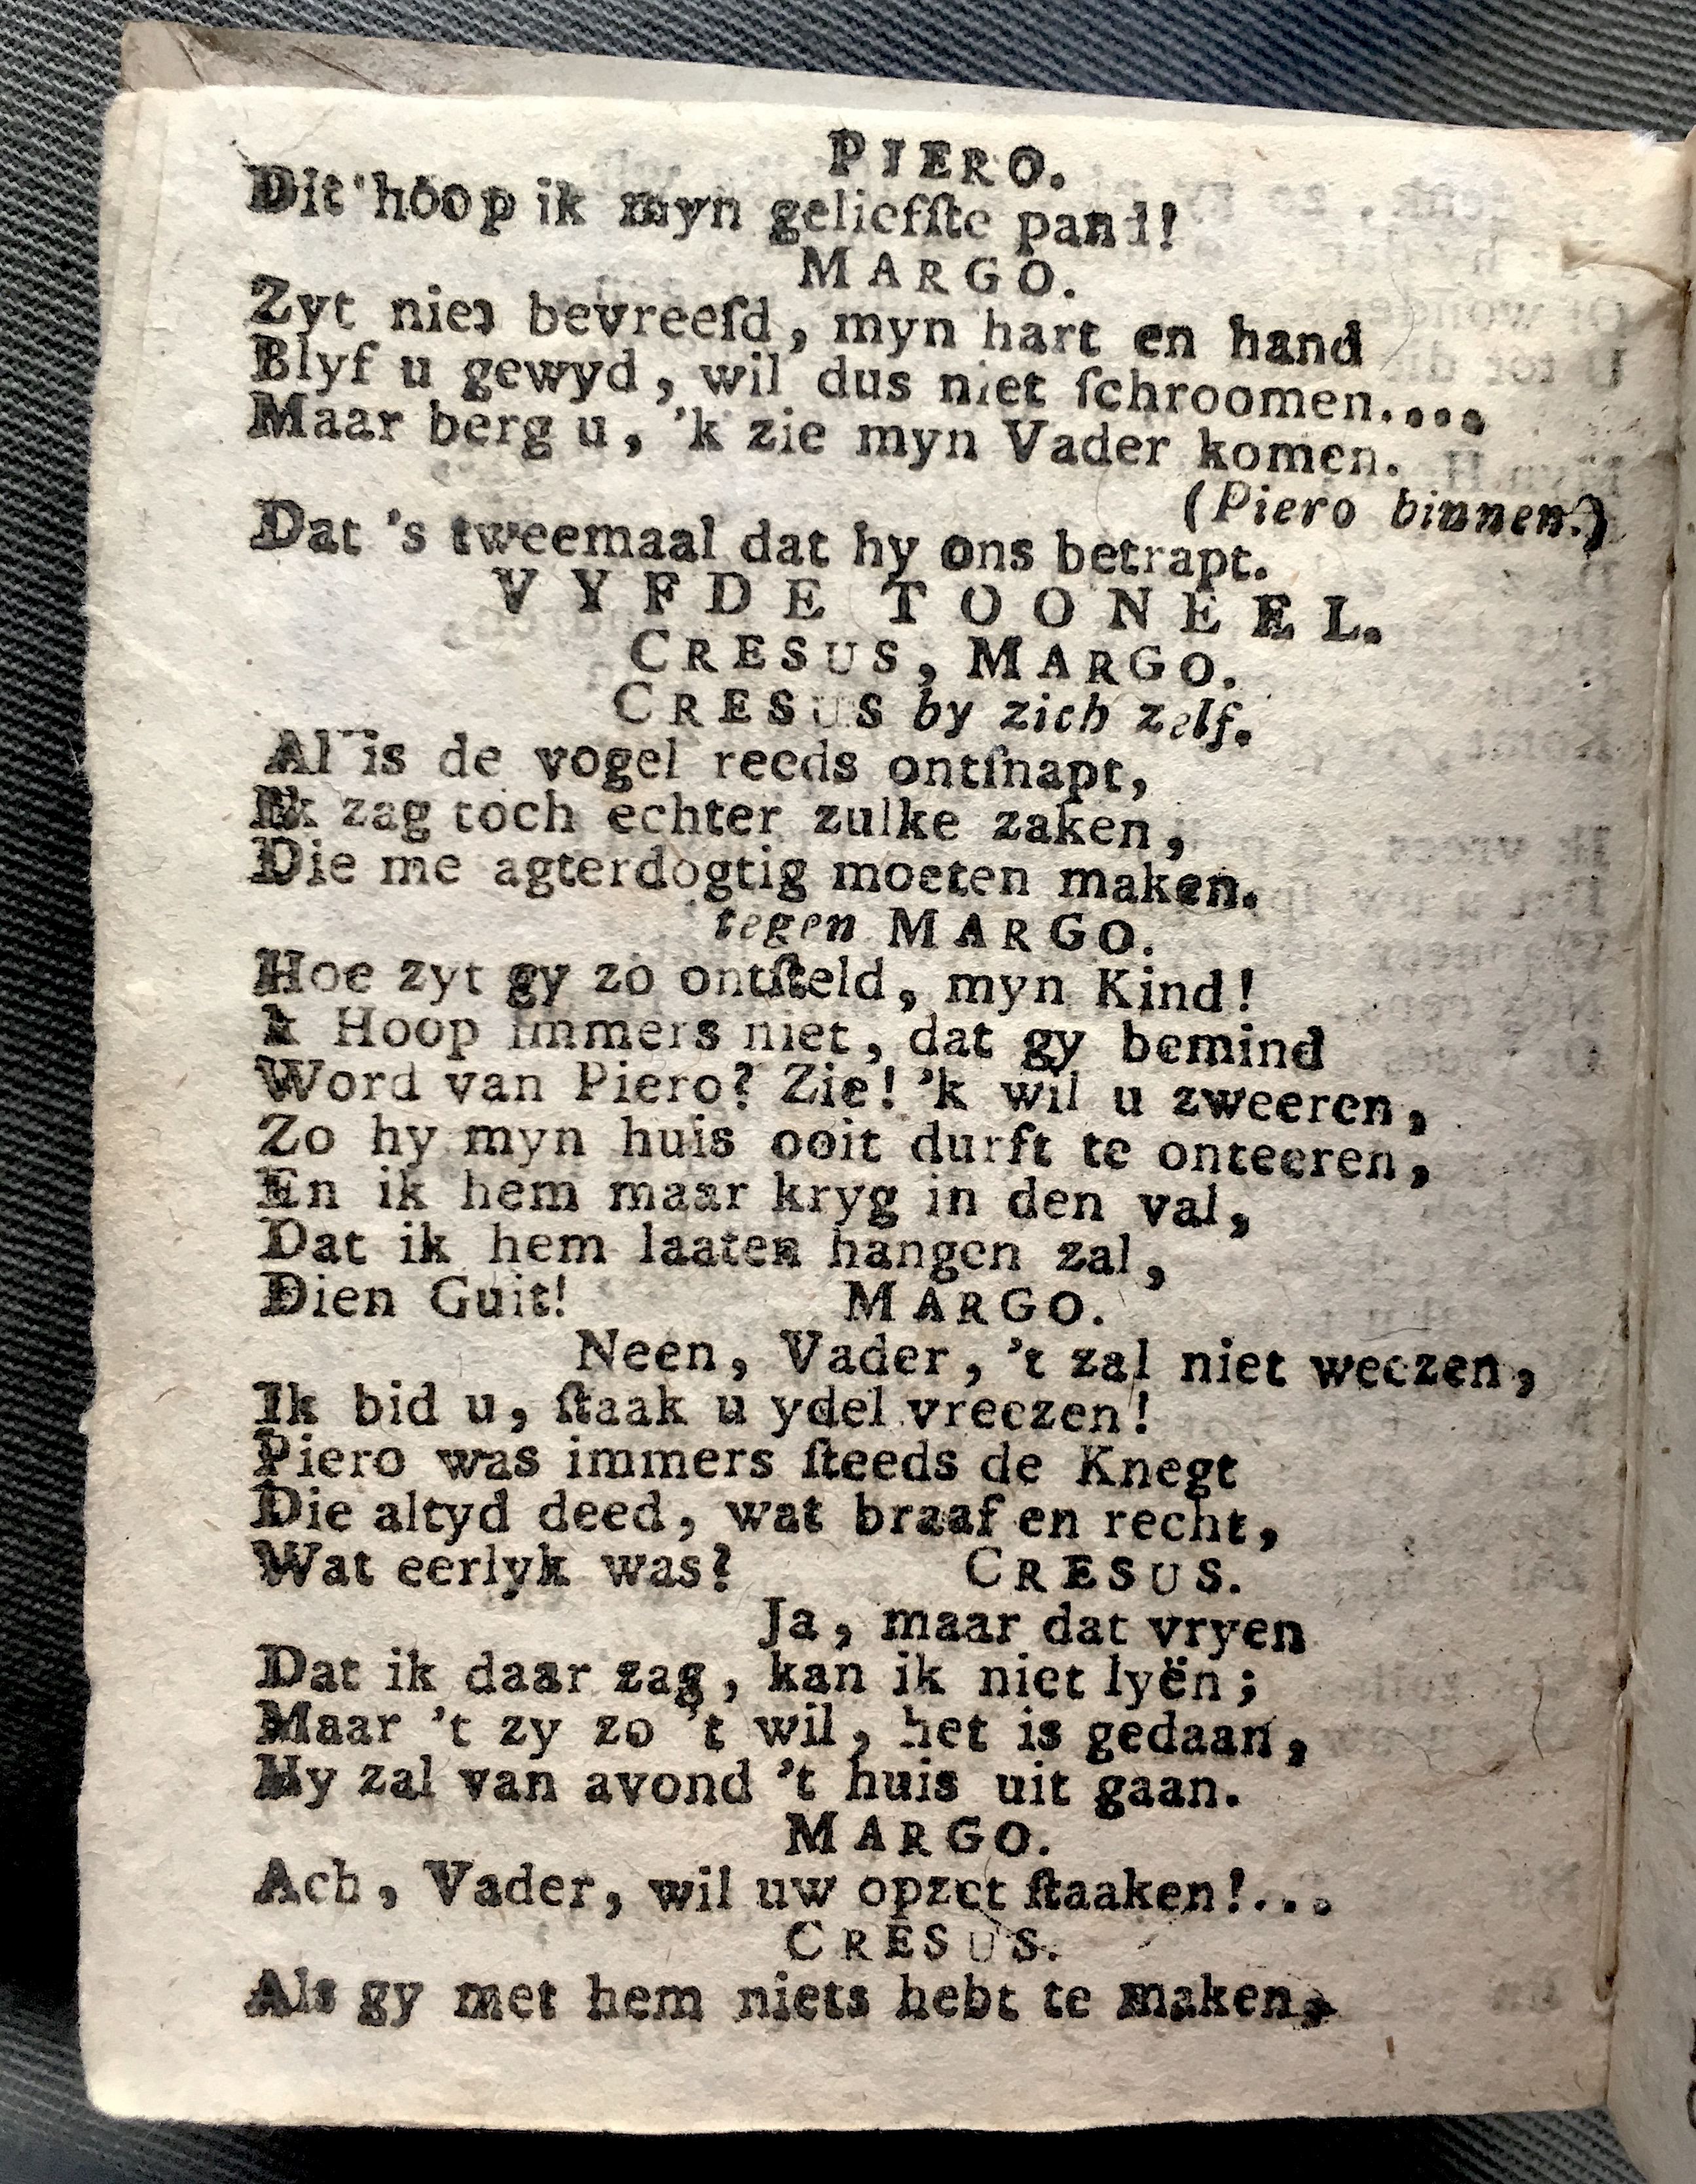 PIERO.
Dit hoop ik myn geliefſte pand!
MARGO.
Zyt niet bevreeſd, myn hart en hand
Blyf u gewyd, wil dus niet ſchroomen....
Maar berg u, 'k zie myn Vader komen.
(Piero binnen.)
Dat 's tweemaal dat hy ons betrapt.
VYFDE TOONEEL.
CRESUS, MARGO.
CRESUS by zich zelf.
Al is de vogel reeds ontſnapt,
Ik zag toch echter zulke zaken,
Die me agterdogtig moeten maken.
tegen MARGO.
Hoe zyt gy zo ontſteld, myn Kind!
k Hoop immers niet, dat gy bemind
Word van Piero? Zie! 'k wil u zweeren,
Zo hy myn huis ooit durft te onteeren,
En ik hem maar kryg in den val,
Dat ik hem laaten hangen zal,
Dien Guit! MARGO.
Neen, Vader, 't zal niet weezen,
Ik bid u, ſtaak u ydel vreezen!
Piero was immers ſteeds de Knegt
Die altyd deed, wat braaf en recht,
Wat eerlyk was? CRESUS.
Ja, maar dat vryen
Dat ik daar zag, kan ik niet lyën;
Maar 't zy zo 't wil, het is gedaan,
Hy zal van avond 't huis uit gaan.
MARGO.
Ach, Vader, wil uw opzet ſtaaken!...
CRESUS.
Als gy met hem niets hebt te maken,